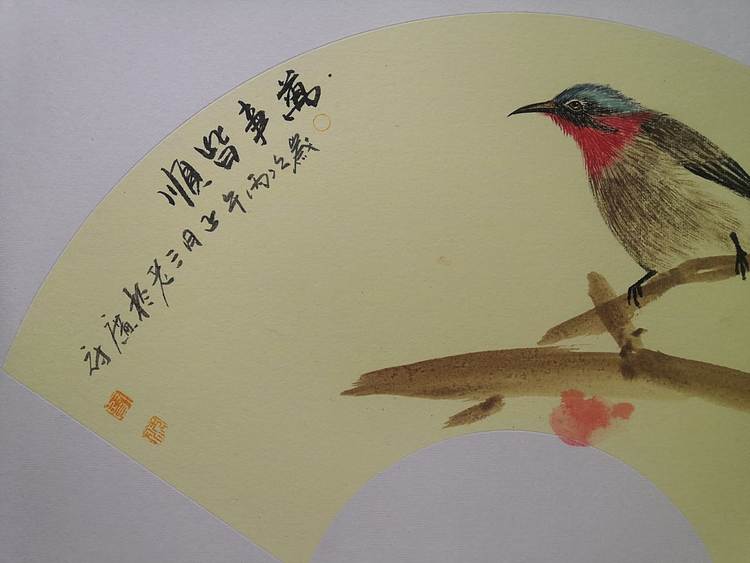 萬事皆順
歲次丙午正月三於廣